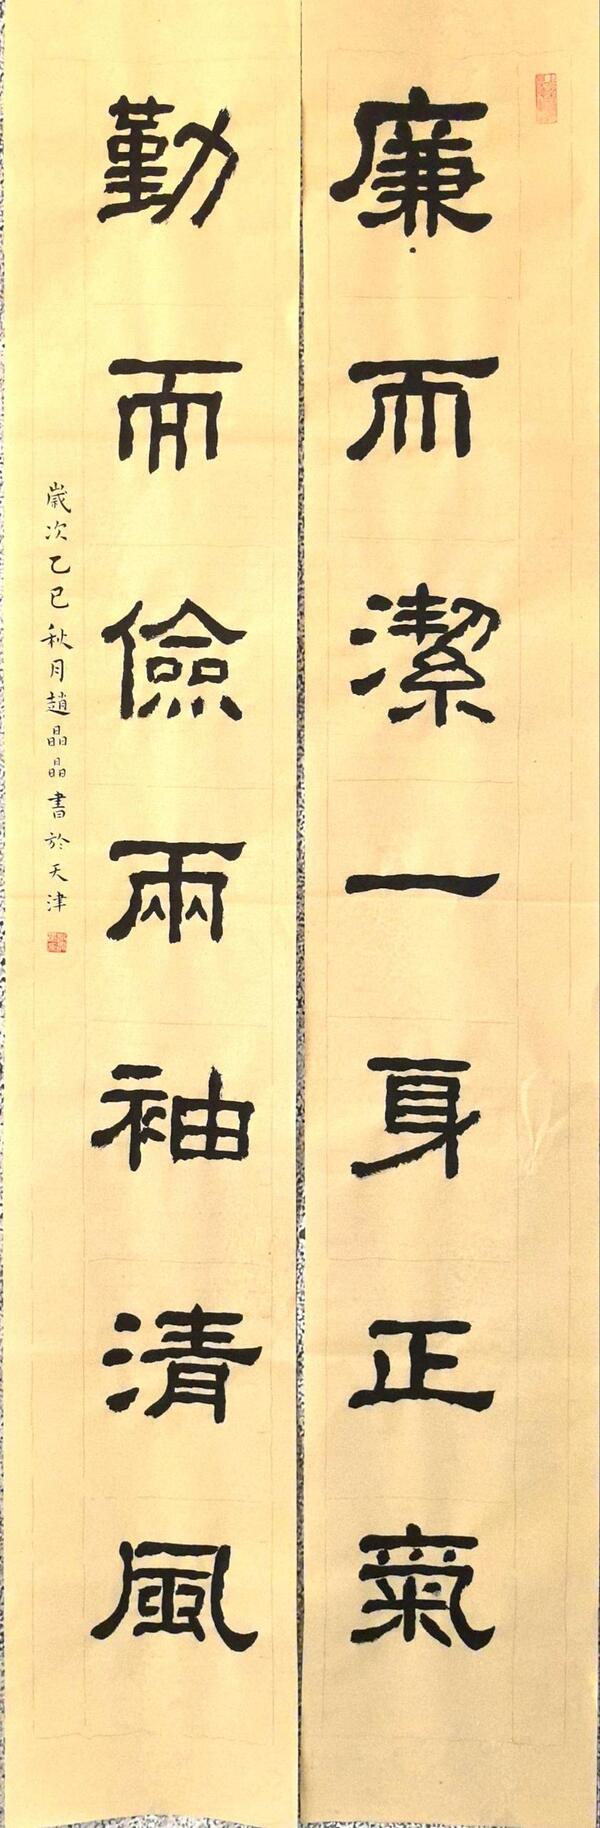 廉而潔一身正氣
勤而儉兩袖清風
歲次乙巳秋月趙晶晶書於天津